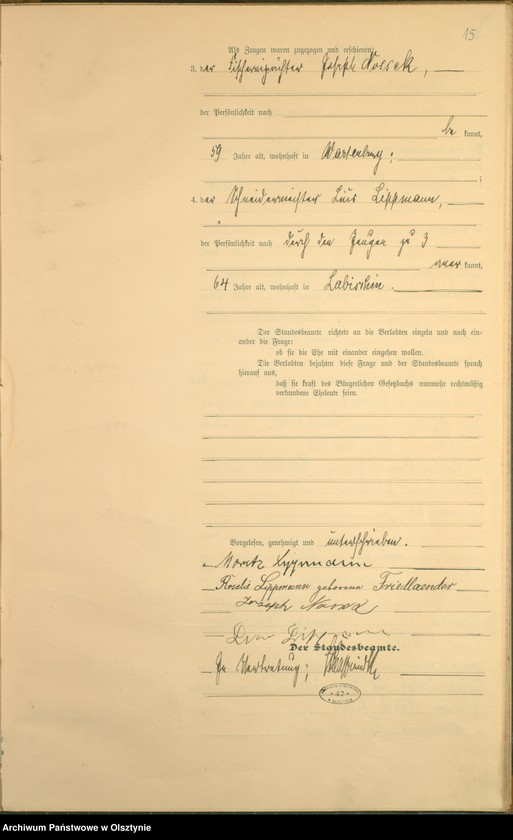 15
Als Zeugen waren zugezogen und erschienen:
3. der Fischereipächter Joseph Nossek,
der Persönlichkeit nach
be kannt,
59 Jahre alt, wohnhaft in Wartenburg;
4. der Schneidermeister Lippmann,
der Persönlichkeit nach durch den Zeugen zu 3
aner kannt,
64 Jahre alt, wohnhaft in Labischin.
Der Standesbeamte richtete an die Verlobten einzeln und nach ein-
ander die Frage:
ob sie die Ehe mit einander eingehen wollen.
Die Verlobten bejahten diese Frage und der Standesbeamte sprach
hierauf aus,
daß sie kraft des Bürgerlichen Gesetzbuchs nunmehr rechtmäßig
verbundene Eheleute seien.
Vorgelesen, genehmigt und unterschrieben.
Moritz Lippmann
Rosalie Lippmann geborene Friedlaender
Joseph
Der Standesbeamte.
In Vertretung;
42
Archiwum Państwowe w Olsztynie